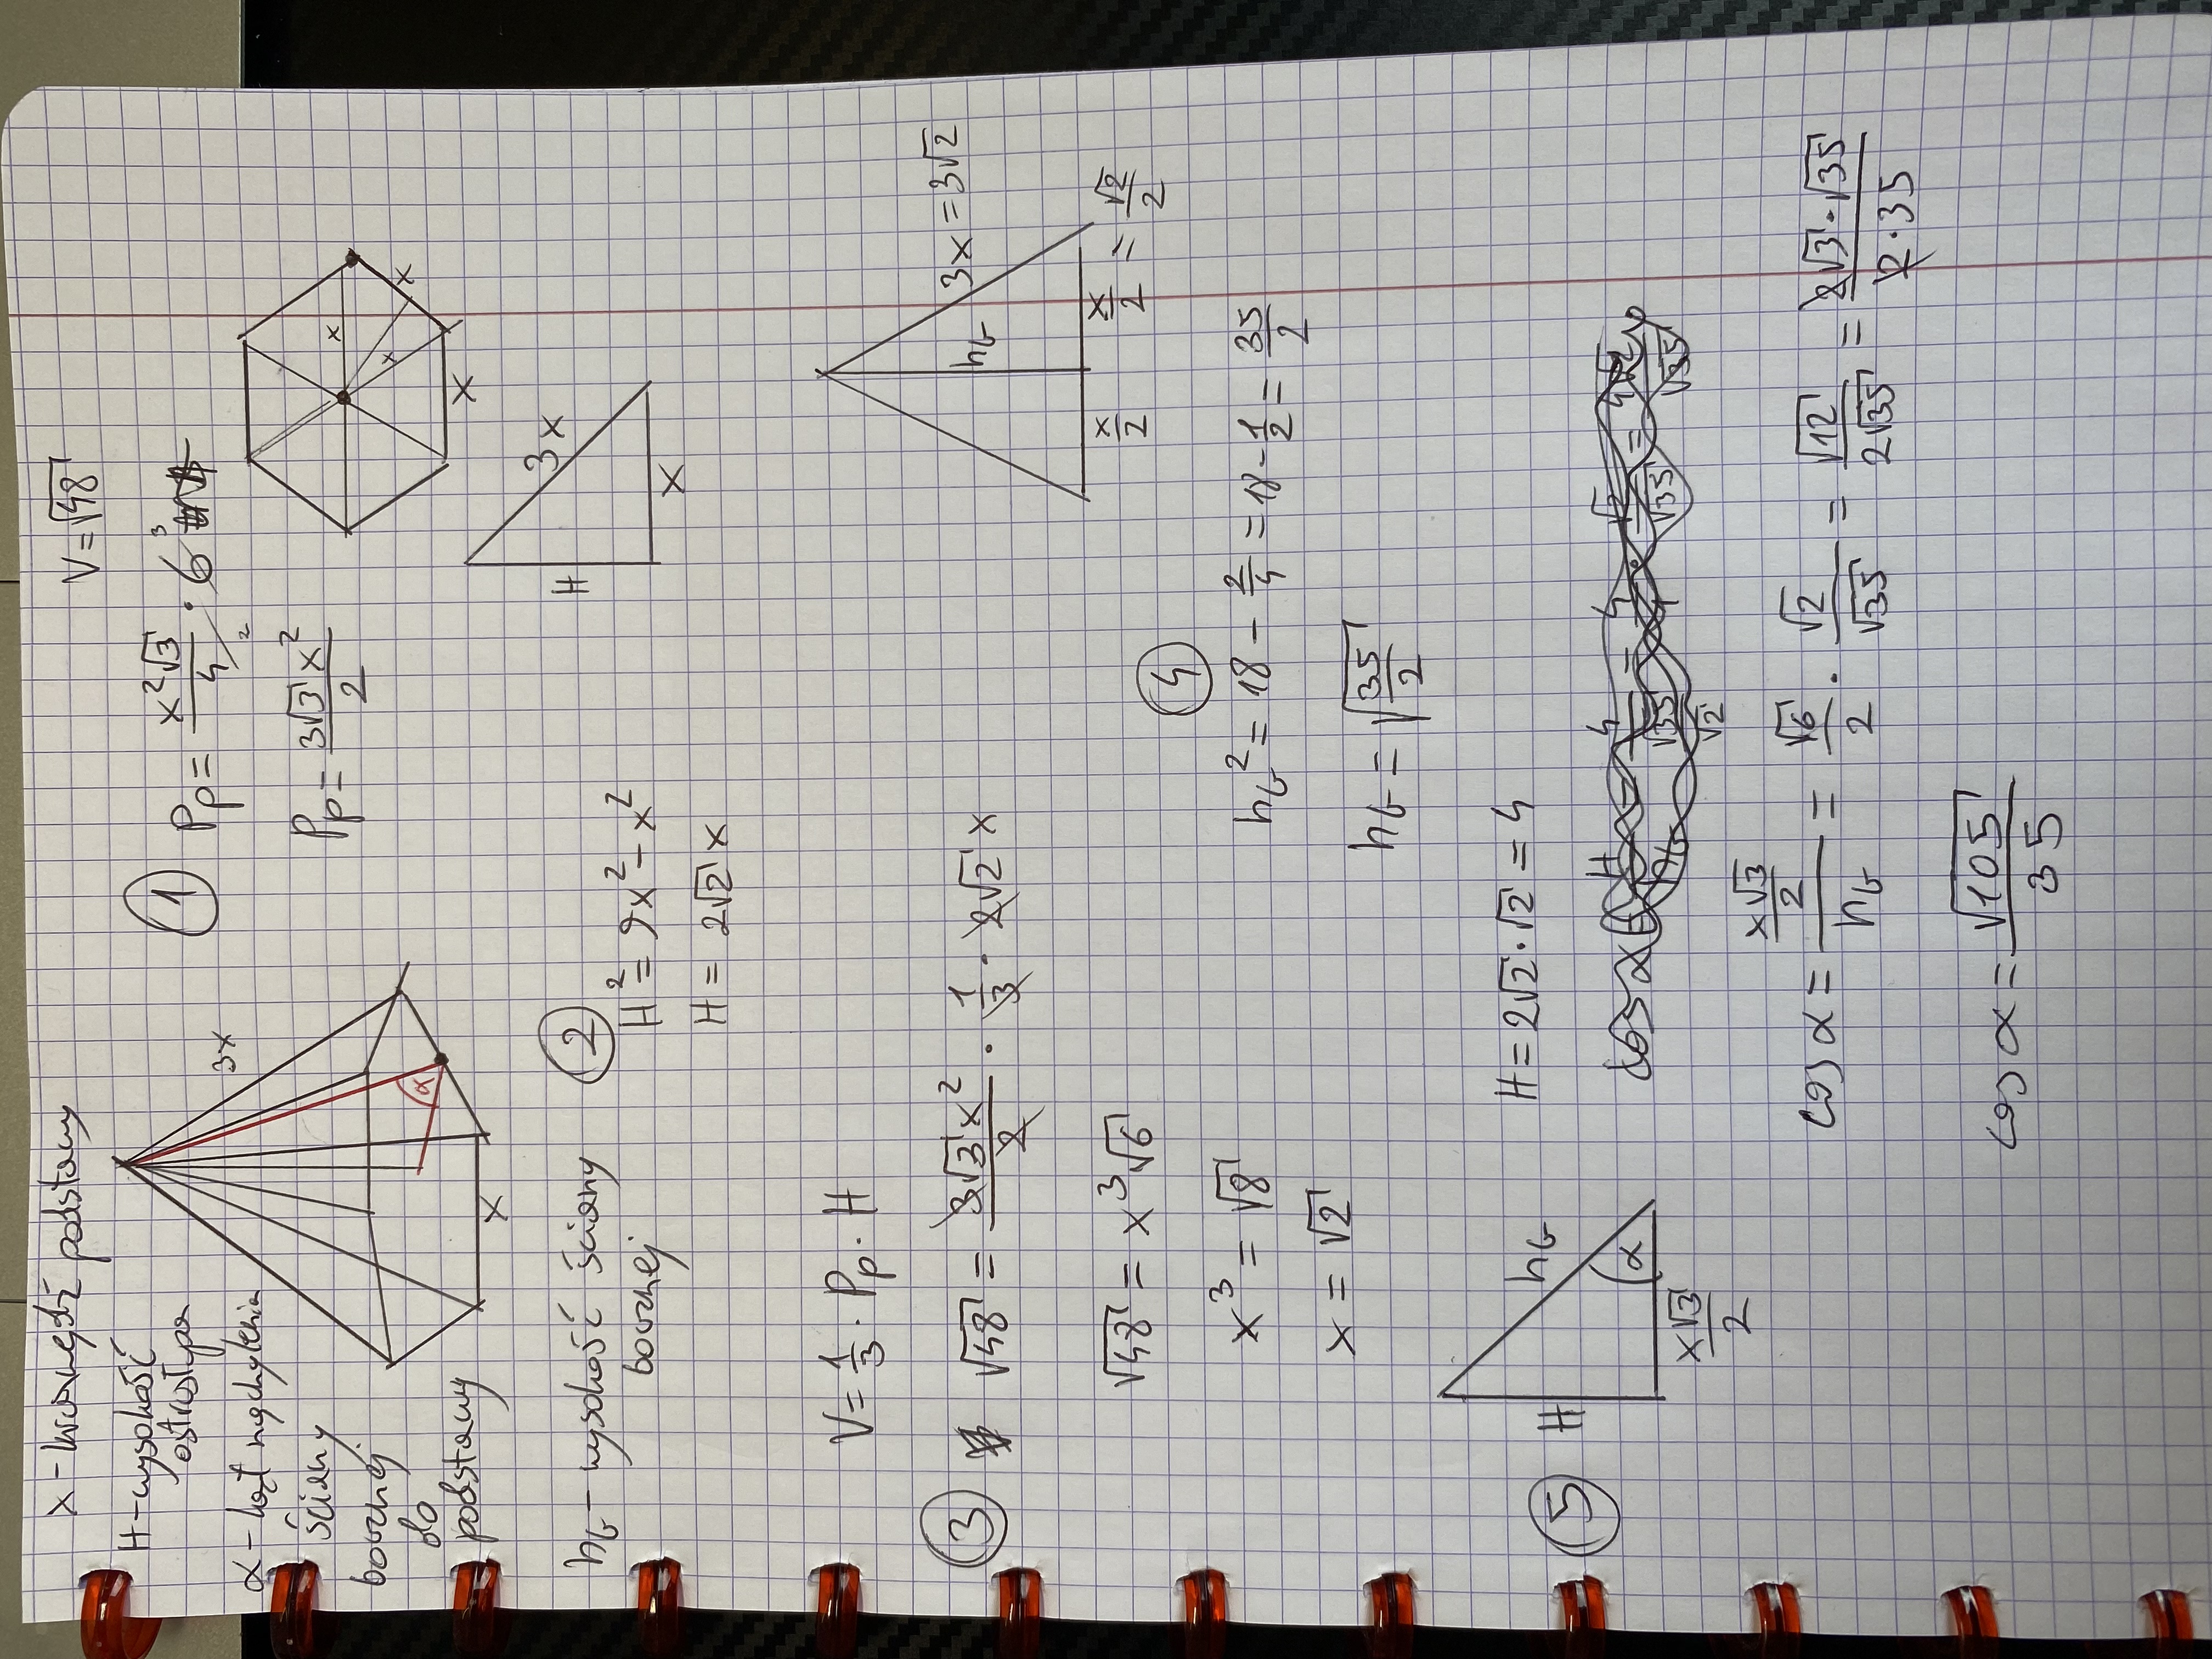 x - krawędź podstawy
H - wysokość
ostrosłupa
α - kąt nachylenia
ściany
bocznej
do
podstawy
3x
α
x
V = √48
① Pp = x²√3/4 · 6
2
3
Pp = 3√3 x²/2
x
x
x
x
hb - wysokość ściany
bocznej
②
H² = 9x² - x²
H = 2√2 x
H
3x
x
V = 1/3 · Pp · H
③ √48 = 3√3 x²/2 · 1/3 · 2√2 x
√48 = x³√6
x³ = √8
x = √2
hb
3x = 3√2
x/2
x/2 = √2/2
④
hb² = 18 - 2/4 = 18 - 1/2 = 35/2
hb = √35/2
⑤
H
hb
α
x√3/2
H = 2√2 · √2 = 4
cos α = H/hb = 4/(√35/√2) = 4 · √2/√35 = 4√2/√35
cos α = (x√3/2)/hb = √6/2 · √2/√35 = √12/2√35 = 2√3 · √35/2 · 35
cos α = √105/35